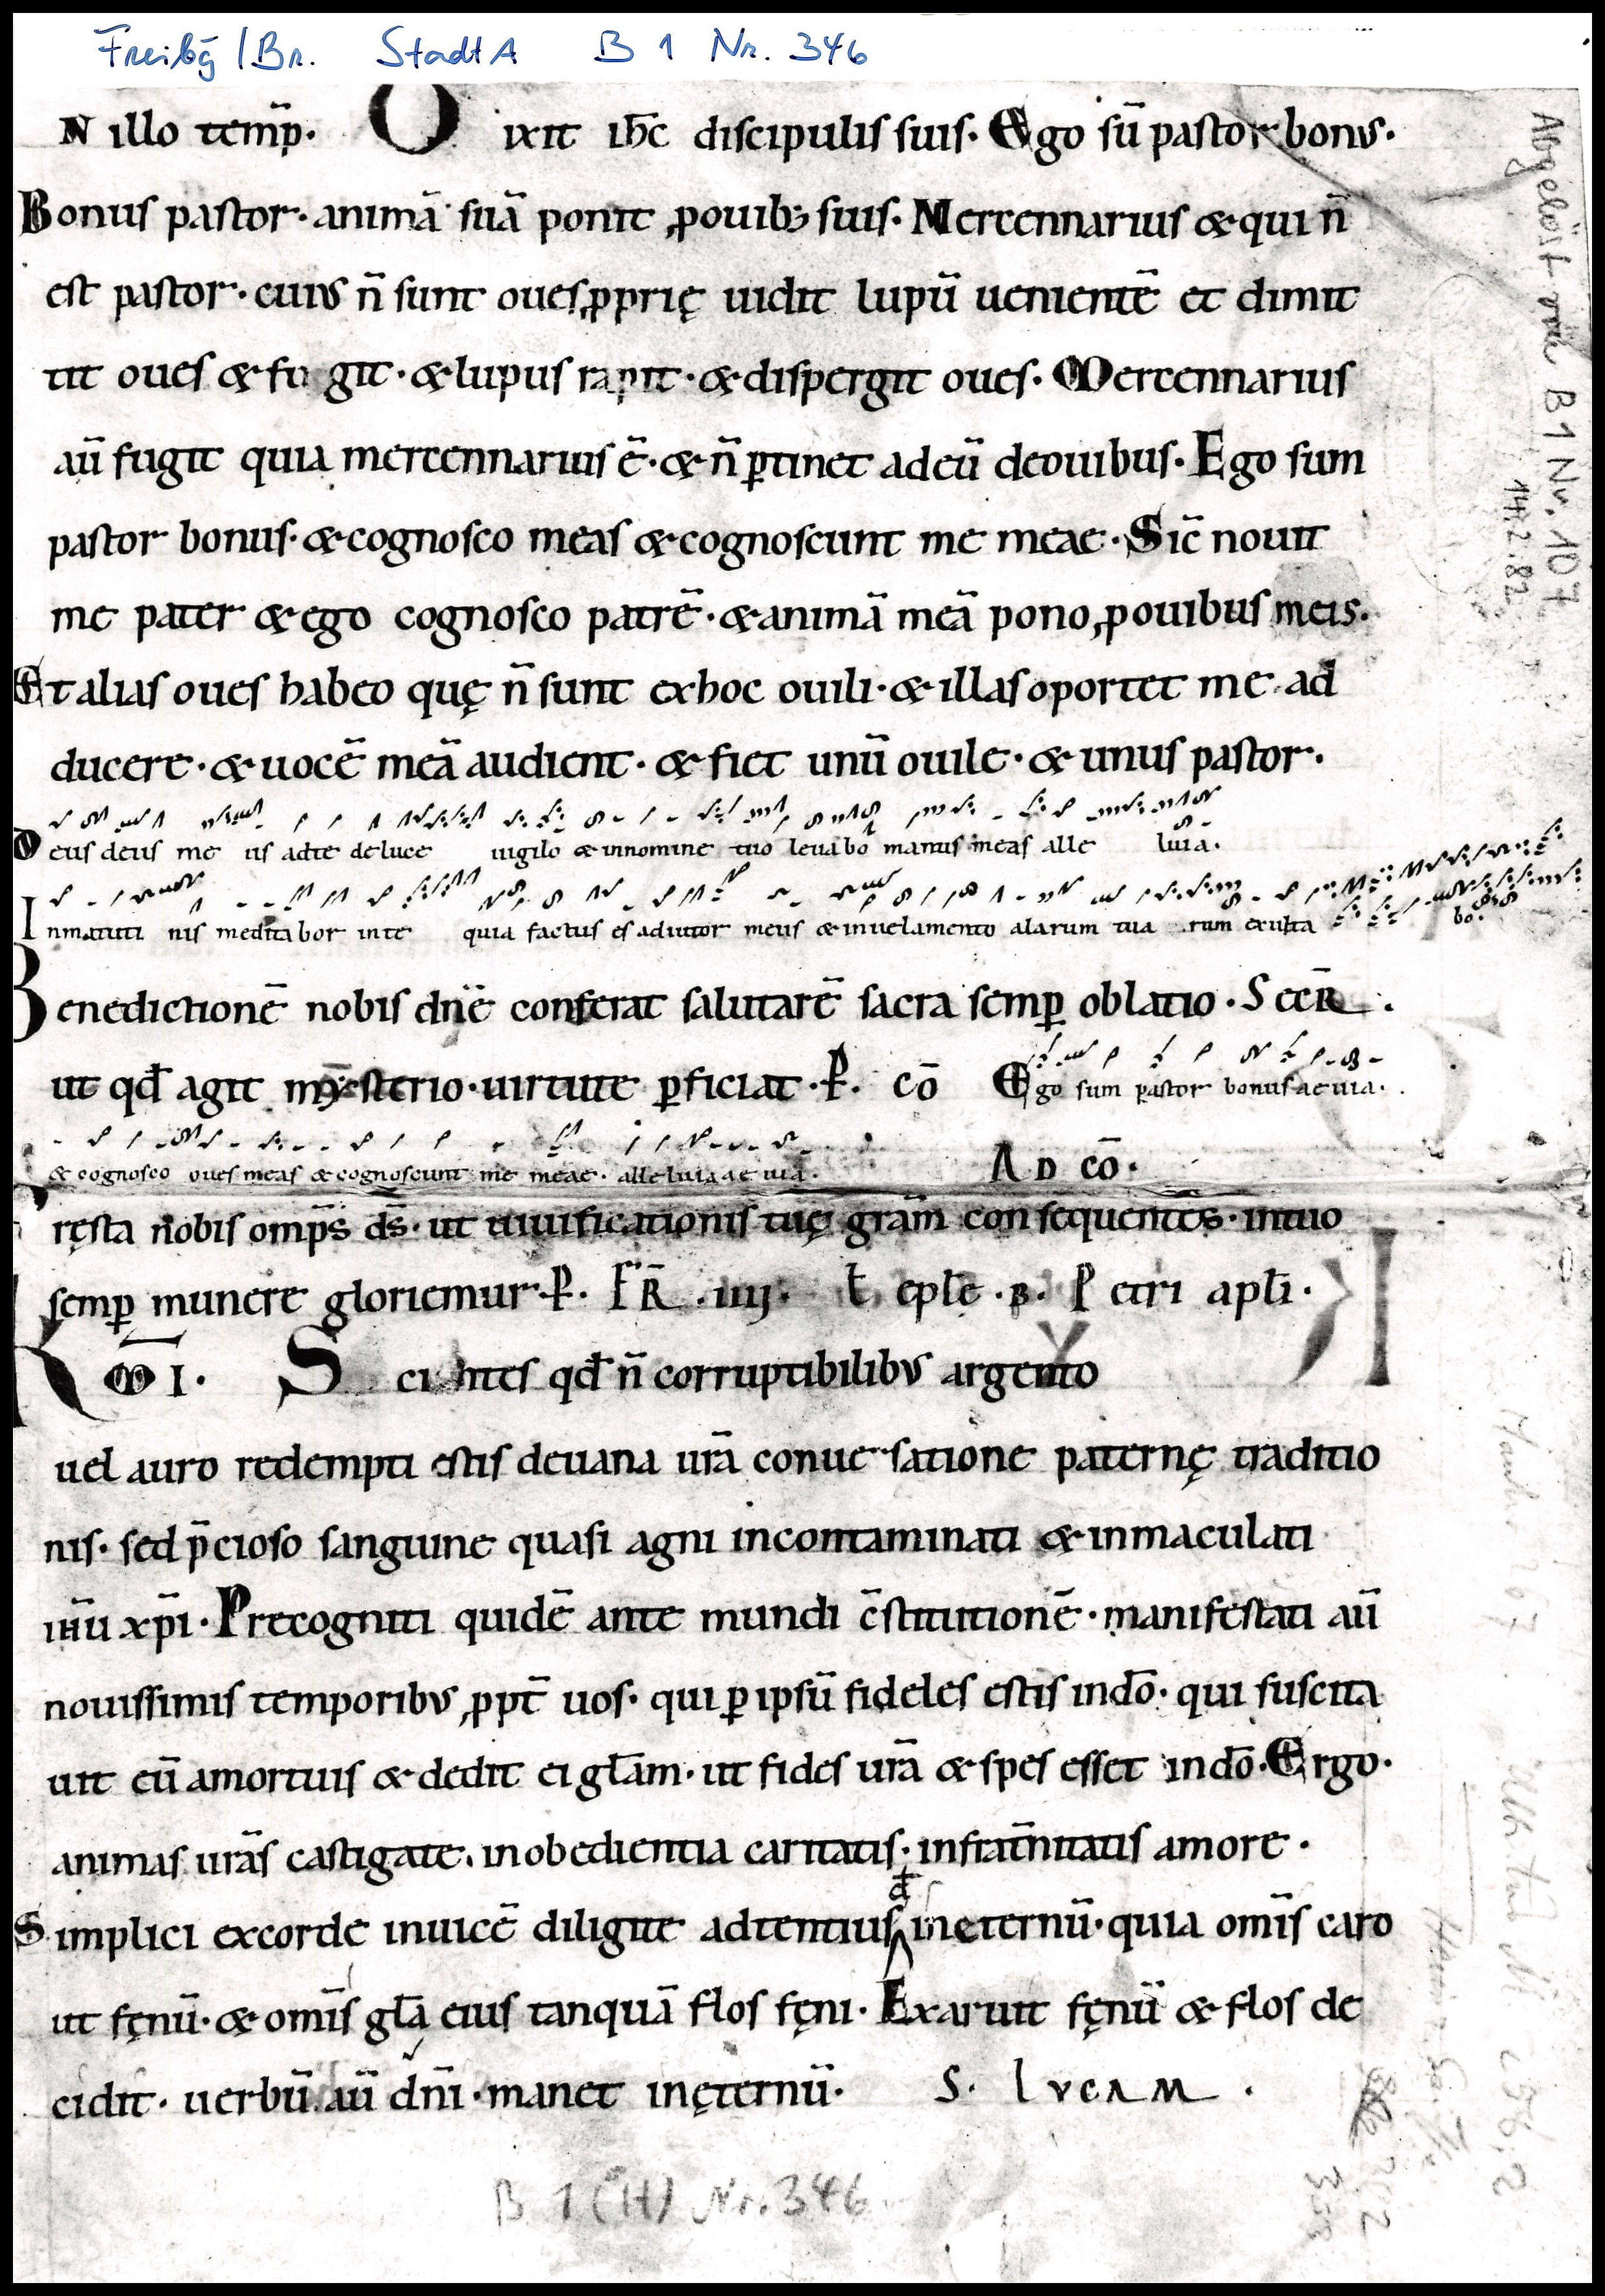 Freibg / Br. StadtA B 1 Nr. 346
N illo temp̄. D ixit ih̄c discipulis suis. Ego sū pastor bonus.
Bonus pastor. animā suā ponit ꝓouibꝫ suis. Mercennarius & qui n̄
est pastor. cuius n̄ sunt oues ꝓprię uidit lupū uenientē et dimit
tit oues & fugit. & lupus rapit. & dispergit oues. Mercennarius
aū fugit quia mercennarius ē. & n̄ ꝑtinet ad eū deouibus. Ego sum
pastor bonus. & cognosco meas & cognoscunt me meae. Sic̄ nouit
me pater & ego cognosco patrē. & animā meā pono ꝓouibus meis.
Et alias oues habeo quę n̄ sunt exhoc ouili. & illas oportet me ad
ducere. & uocē meā audient. & fiet unū ouile. & unus pastor.
Deus deus me us adte deluce uigilo & innomine tuo leuabo manus meas alle luia.
Inmatuti nis meditabor inte quia factus es adiutor meus & inuelamento alarum tua rum exulta bo.
Benedictionē nobis dn̄e conferat salutarē sacra semꝑ oblatio. SecR̄.
ut qđ agit mysterio. uirtute ꝑficiat. P. cō Ego sum pastor bonus aeuia.
& cognosco oues meas & cognoscunt me meae. alleluia ae uia. AD cō.
ręsta nobis omp̄s d̄s. ut uiuificationis tuę grām consequentes. intuo
semꝑ munere gloriemur. P. FR̄. iiij. ł eplē. B. Petri apłi.
R M I. S cientes qđ n̄ corruptibilibus argento
uel auro redempti estis deuana urā conuersatione paternę traditio
nis. sed p̄cioso sanguine quasi agni incontaminati & inmaculati
ih̄u xp̄i. Precogniti quidē ante mundi c̄stitutionē. manifestati aū
nouissimis temporibus ꝓpt̄ uos. qui ꝑ ipsū fideles estis indō. qui suscita
uit eū amortuis & dedit ei głam. ut fides urā & spes esset indō. Ergo.
animas urās castigate. inobedientia caritatis. infrat̄nitatis amore.
Simplici excorde inuicē diligite adtentius ineternū. quia omīs caro
ut fęnū. & omīs gła eius tanquā flos fęni. Exaruit fęnū & flos de
cidit. uerbū aū dn̄i. manet inęternū. S. LVCAM.
B 1 (H) Nr. 346
Abgelöst von B 1 Nr. 107
14.2.82